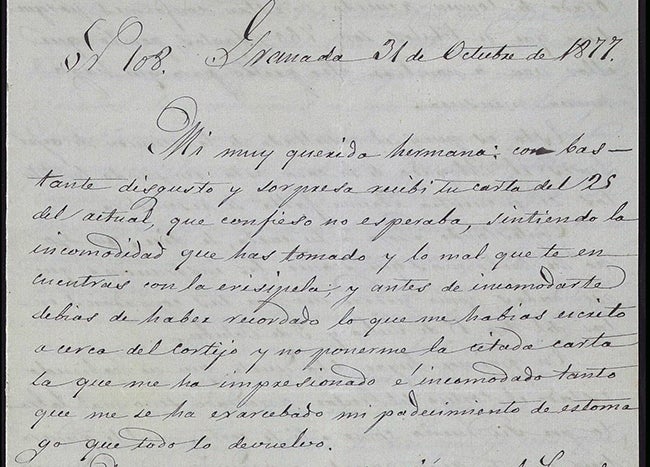 Nº 108. Granada 31 de Octubre de 1877.
Mi muy querida hermana: con bas-
tante disgusto y sorpresa recibi tu carta del 25
del actual, que confieso no esperaba, sintiendo la
incomodidad que has tomado y lo mal que te en
cuentras con la erisipela; y antes de incomodarte
debias de haber recordado lo que me habias escrito
a cerca del cortijo y no ponerme la citada carta
la que me ha impresionado é incomodado tanto
que me se ha exarcebado mi padecimiento de estoma
go que todo lo devuelvo.